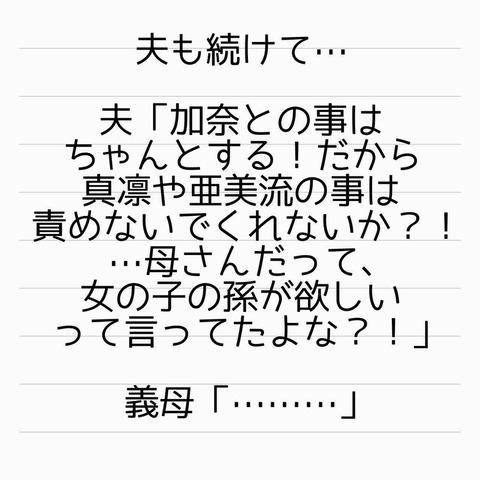 夫も続けて…
夫「加奈との事は
ちゃんとする！だから
真凛や亜美流の事は
責めないでくれないか？！
…母さんだって、
女の子の孫が欲しい
って言ってたよな？！」
義母「………」